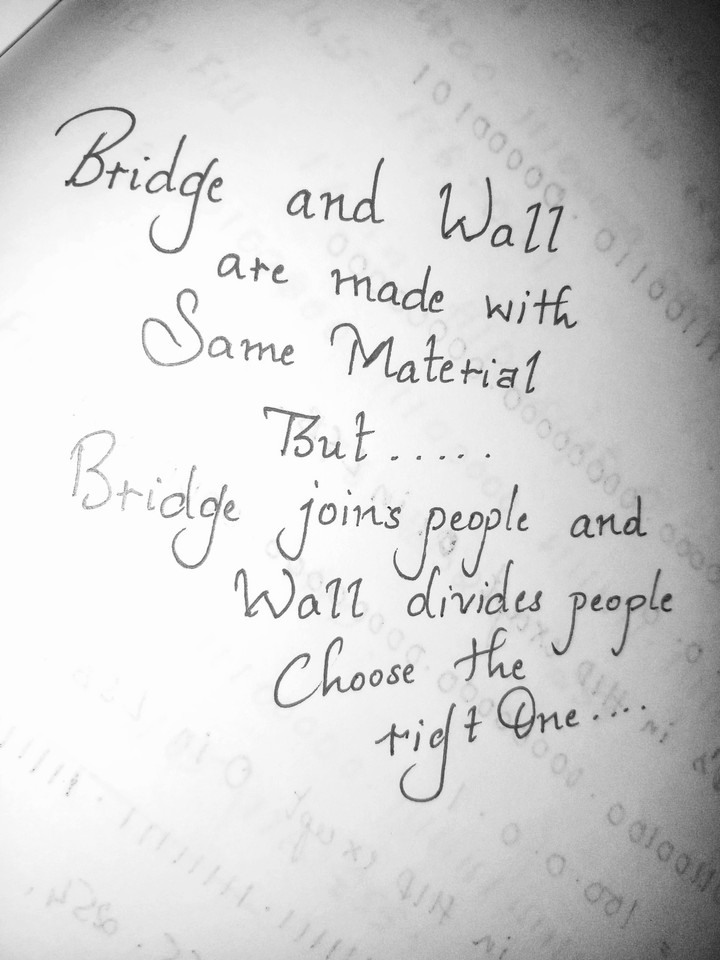 Bridge and Wall
are made with
Same Material
But.....
Bridge joins people and
Wall divides people
Choose the
right One....